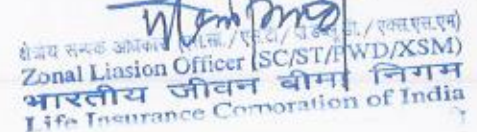 क्षेत्रीय सम्पर्क अधिकारी (एस.सी./एस.टी/पी.डब्ल्यू.डी./एक्स.एस.एम)
Zonal Liasion Officer (SC/ST/PWD/XSM)
भारतीय जीवन बीमा निगम
Life Insurance Corporation of India